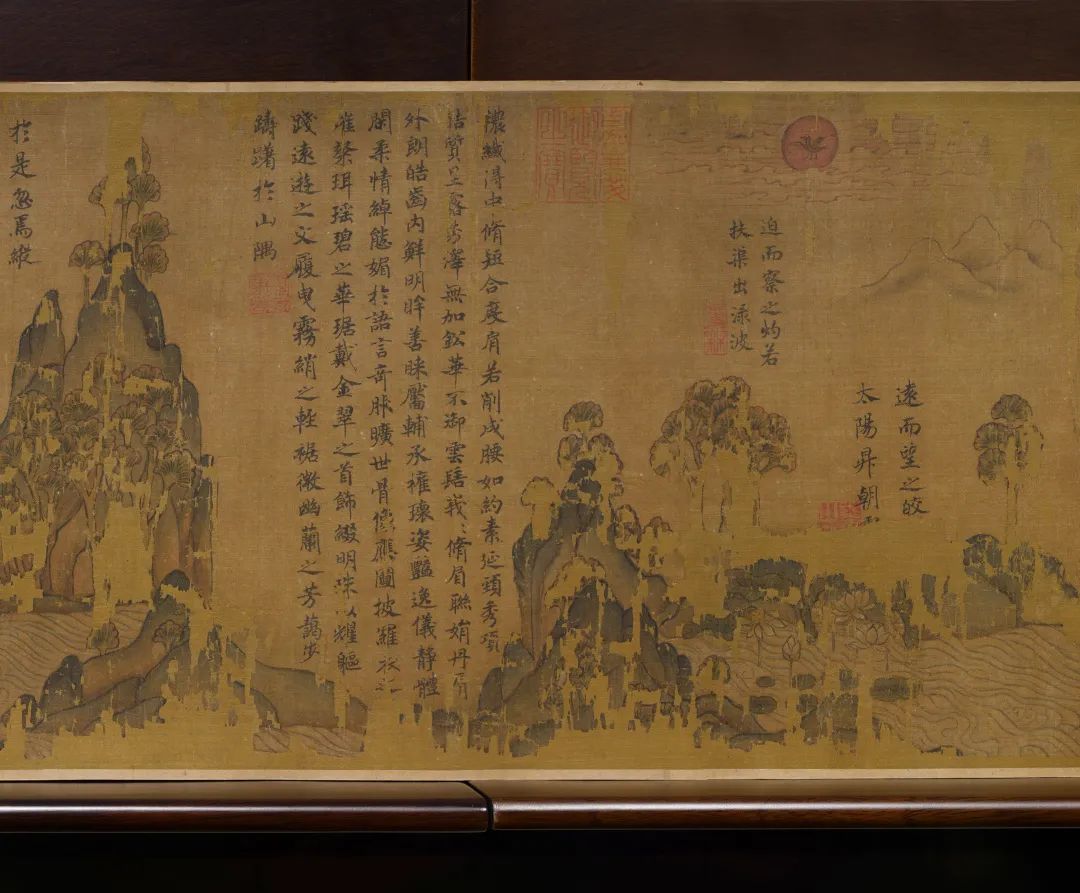 遠而望之皎
太陽昇朝
迫而察之灼若
扶渠出淥波
濃纖淂中脩短合度肩若削成腰如約素延頸秀項
皓質呈露芳澤無加鈆華不御雲髻峩〻脩眉聯娟丹脣
外朗皓齒內鮮明眸善睞靨輔承權瓌姿豔逸儀静體
閑柔情綽態媚於語言奇服曠世骨像應圖披羅衣
璀粲珥瑤碧之華琚戴金翠之首飾綴明珠以耀軀
踐遠遊之文履曳霧綃之輕裾微幽蘭之芳藹步
躊躇於山隅
於是忽焉縱